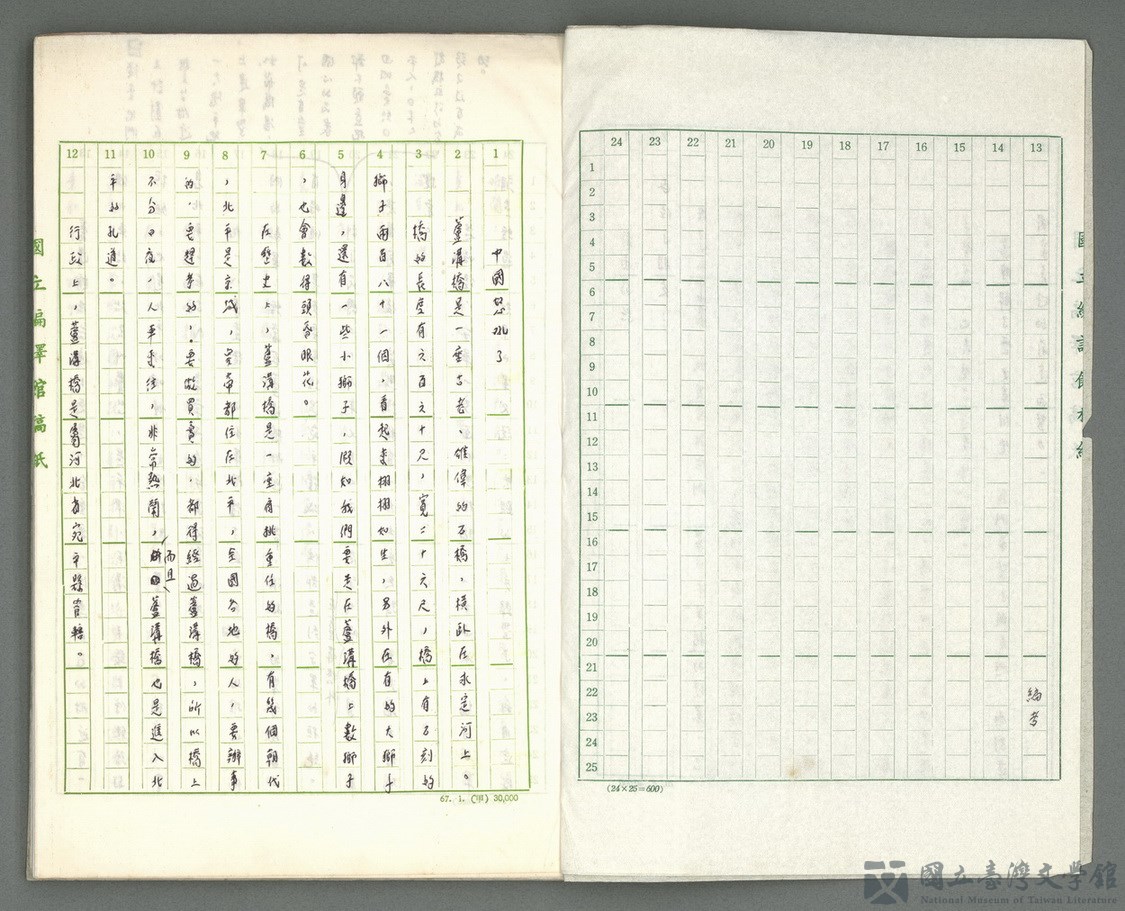 13 14 15 16 17 18 19 20 21 22 23 24
1
2
3
4
5
6
7
8
9
10
11
12
13
14
15
16
17
18
19
20
21
22
23
24
25
編者
(24×25=600)
1 2 3 4 5 6 7 8 9 10 11 12
中國怒吼了
蘆溝橋是一座古老、雄偉的石橋，橫臥在永定河上。
橋的長度有六百六十尺，寬二十六尺，橋上有石刻的
獅子兩百八十一個，看起來栩栩如生，另外在有的大獅子
身邊，還有一些小獅子，假如我們要走在蘆溝橋上數獅子
，也會數得頭昏眼花。
在歷史上，蘆溝橋是一座肩挑重任的橋，有幾個朝代
，北平是京城，皇帝都住在北平，全國各地的人，要辦事
的，要趕考的，要做買賣的，都得經過蘆溝橋，所以橋上
不分日夜，人車來往，非常熱鬧，而且蘆溝橋也是進入北
平的孔道。
行政上，蘆溝橋是屬河北省宛平縣管轄。
國立編譯館稿紙
67. 1. (甲) 30,000
國立臺灣文學館
National Museum of Taiwan Literature